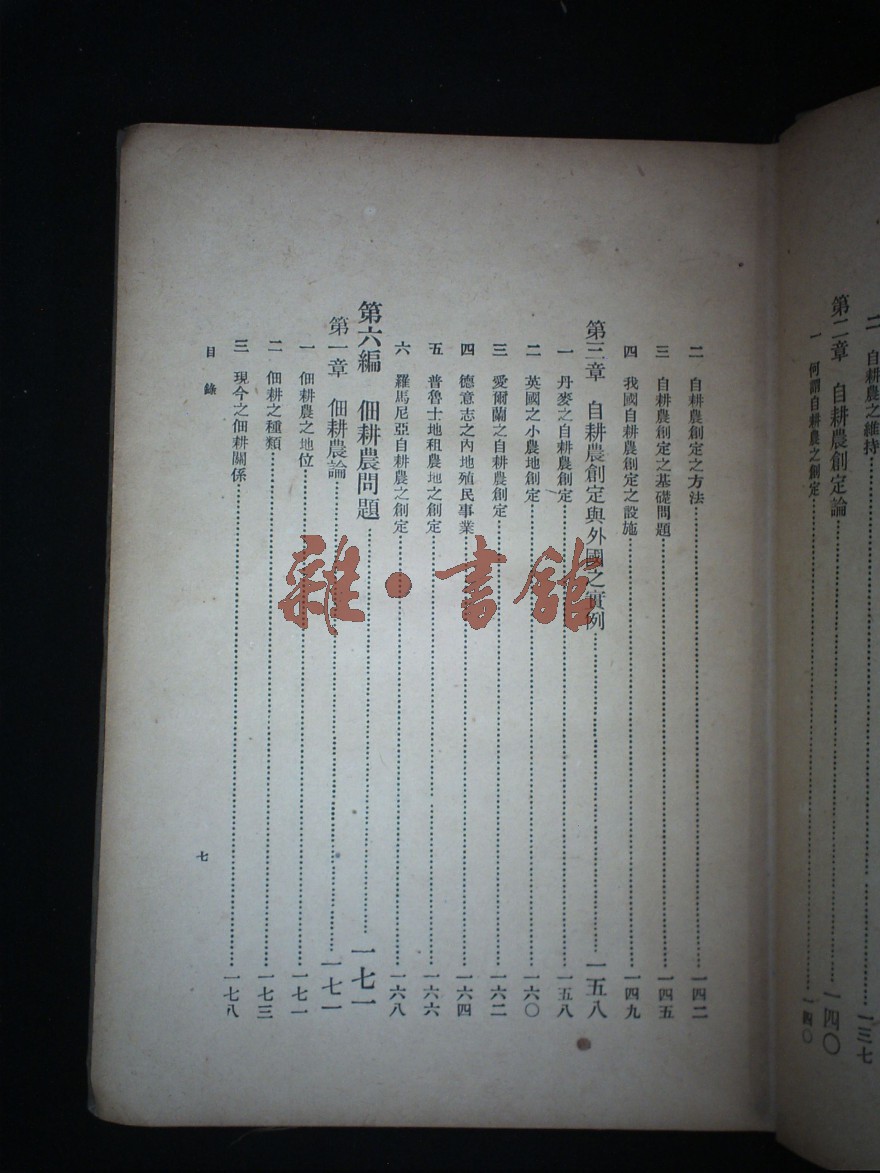 二 自耕農之維持……一三七
第二章 自耕農創定論……一四〇
一 何謂自耕農之創定……一四〇
二 自耕農創定之方法……一四二
三 自耕農創定之基礎問題……一四五
四 我國自耕農創定之設施……一四九
第三章 自耕農創定與外國之實例……一五八
一 丹麥之自耕農創定……一五八
二 英國之小農地創定……一六〇
三 愛爾蘭之自耕農創定……一六二
四 德意志之內地殖民事業……一六四
五 普魯士地租農地之創定……一六六
六 羅馬尼亞自耕農之創定……一六八
第六編 佃耕農問題……一七一
第一章 佃耕農論……一七一
一 佃耕農之地位……一七一
二 佃耕之種類……一七三
三 現今之佃耕關係……一七八
目錄
七
雜·書館